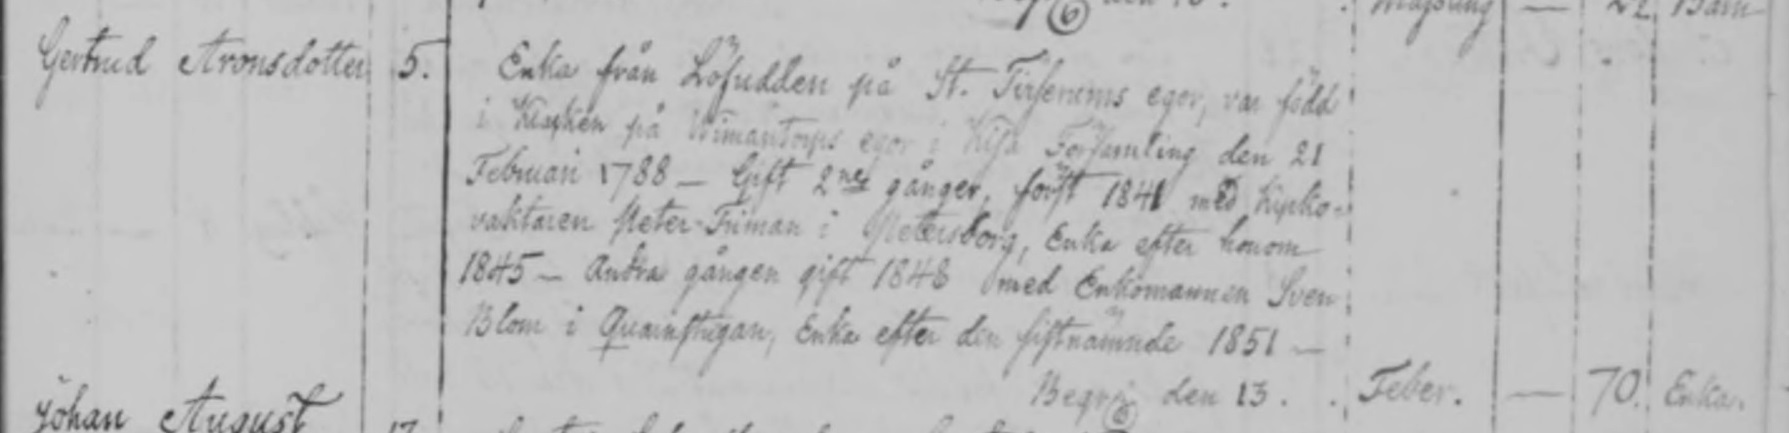 den
22 Barn
Gertrud Aronsdotter 5. Enka från Löfudden på St. Tirserums egor, var född
i på egor i Kisa Församling den 21
Februari 1788 — Gift 2ne gånger, först 1841 med Kyrko-
vaktaren Peter Friman i Petersborg, Enka efter honom
1845 — Andra gången gift 1848 med Enkomannen Sven
Blom i Quarnstugan, Enka efter den sistnämnde 1851 —
Begr. den 13. Feber. — 70. Enka.
Johan August 17